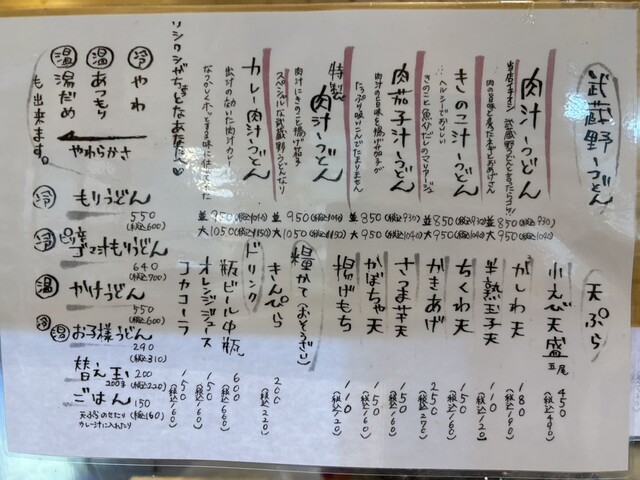 武蔵野うどん
肉汁うどん
当店イチオシ 武蔵野うどんと言ったらコレ!
肉の旨味と長ネギとおあげさん
並 850(税込930)
大 950(税込1040)
きのこ汁うどん
ヘルシーでおいしい
きのこと魚介だしのマリアージュ
並 850(税込930)
大 950(税込1040)
肉茄子汁うどん
肉汁の旨味と揚げ茄子が
たっぷり吸いこんでたまりません
並 850(税込930)
大 950(税込1040)
特製
肉汁うどん
肉汁にきのこと揚げ茄子
スペシャルな武蔵野うどんなり
並 950(税込1040)
大 1050(税込1150)
カレー肉汁うどん
出汁の効いた肉汁カレー
なつかしくホッとする味に仕上げました
並 950(税込1040)
大 1050(税込1150)
リシクシがちょとなあなたに♡
冷 やわ
温 あつもり
温 湯だめ
も出来ます。
やわらかさ
冷 もりうどん
550
(税込600)
冷 ピリ辛ゴマ汁もりうどん
640
(税込700)
温 かけうどん
550
(税込600)
冷 温 お子様うどん
290
(税込310)
替え玉 200
200g (税込220)
ごはん 150
天ぷらのせたり (税込160)
カレー汁に入れたり
天ぷら
小えび天盛 五尾 450(税込490)
かしわ天 180(税込190)
半熟玉子天 110(税込120)
ちくわ天 150(税込160)
かきあげ 250(税込270)
さつま芋天 150(税込160)
かぼちゃ天 150(税込160)
揚げもち 110(税込120)
糧(かておそうざい)
きんぴら 200(税込220)
ドリンク
瓶ビール中瓶 600(税込660)
オレンジジュース 150(税込160)
コカコーラ 150(税込160)